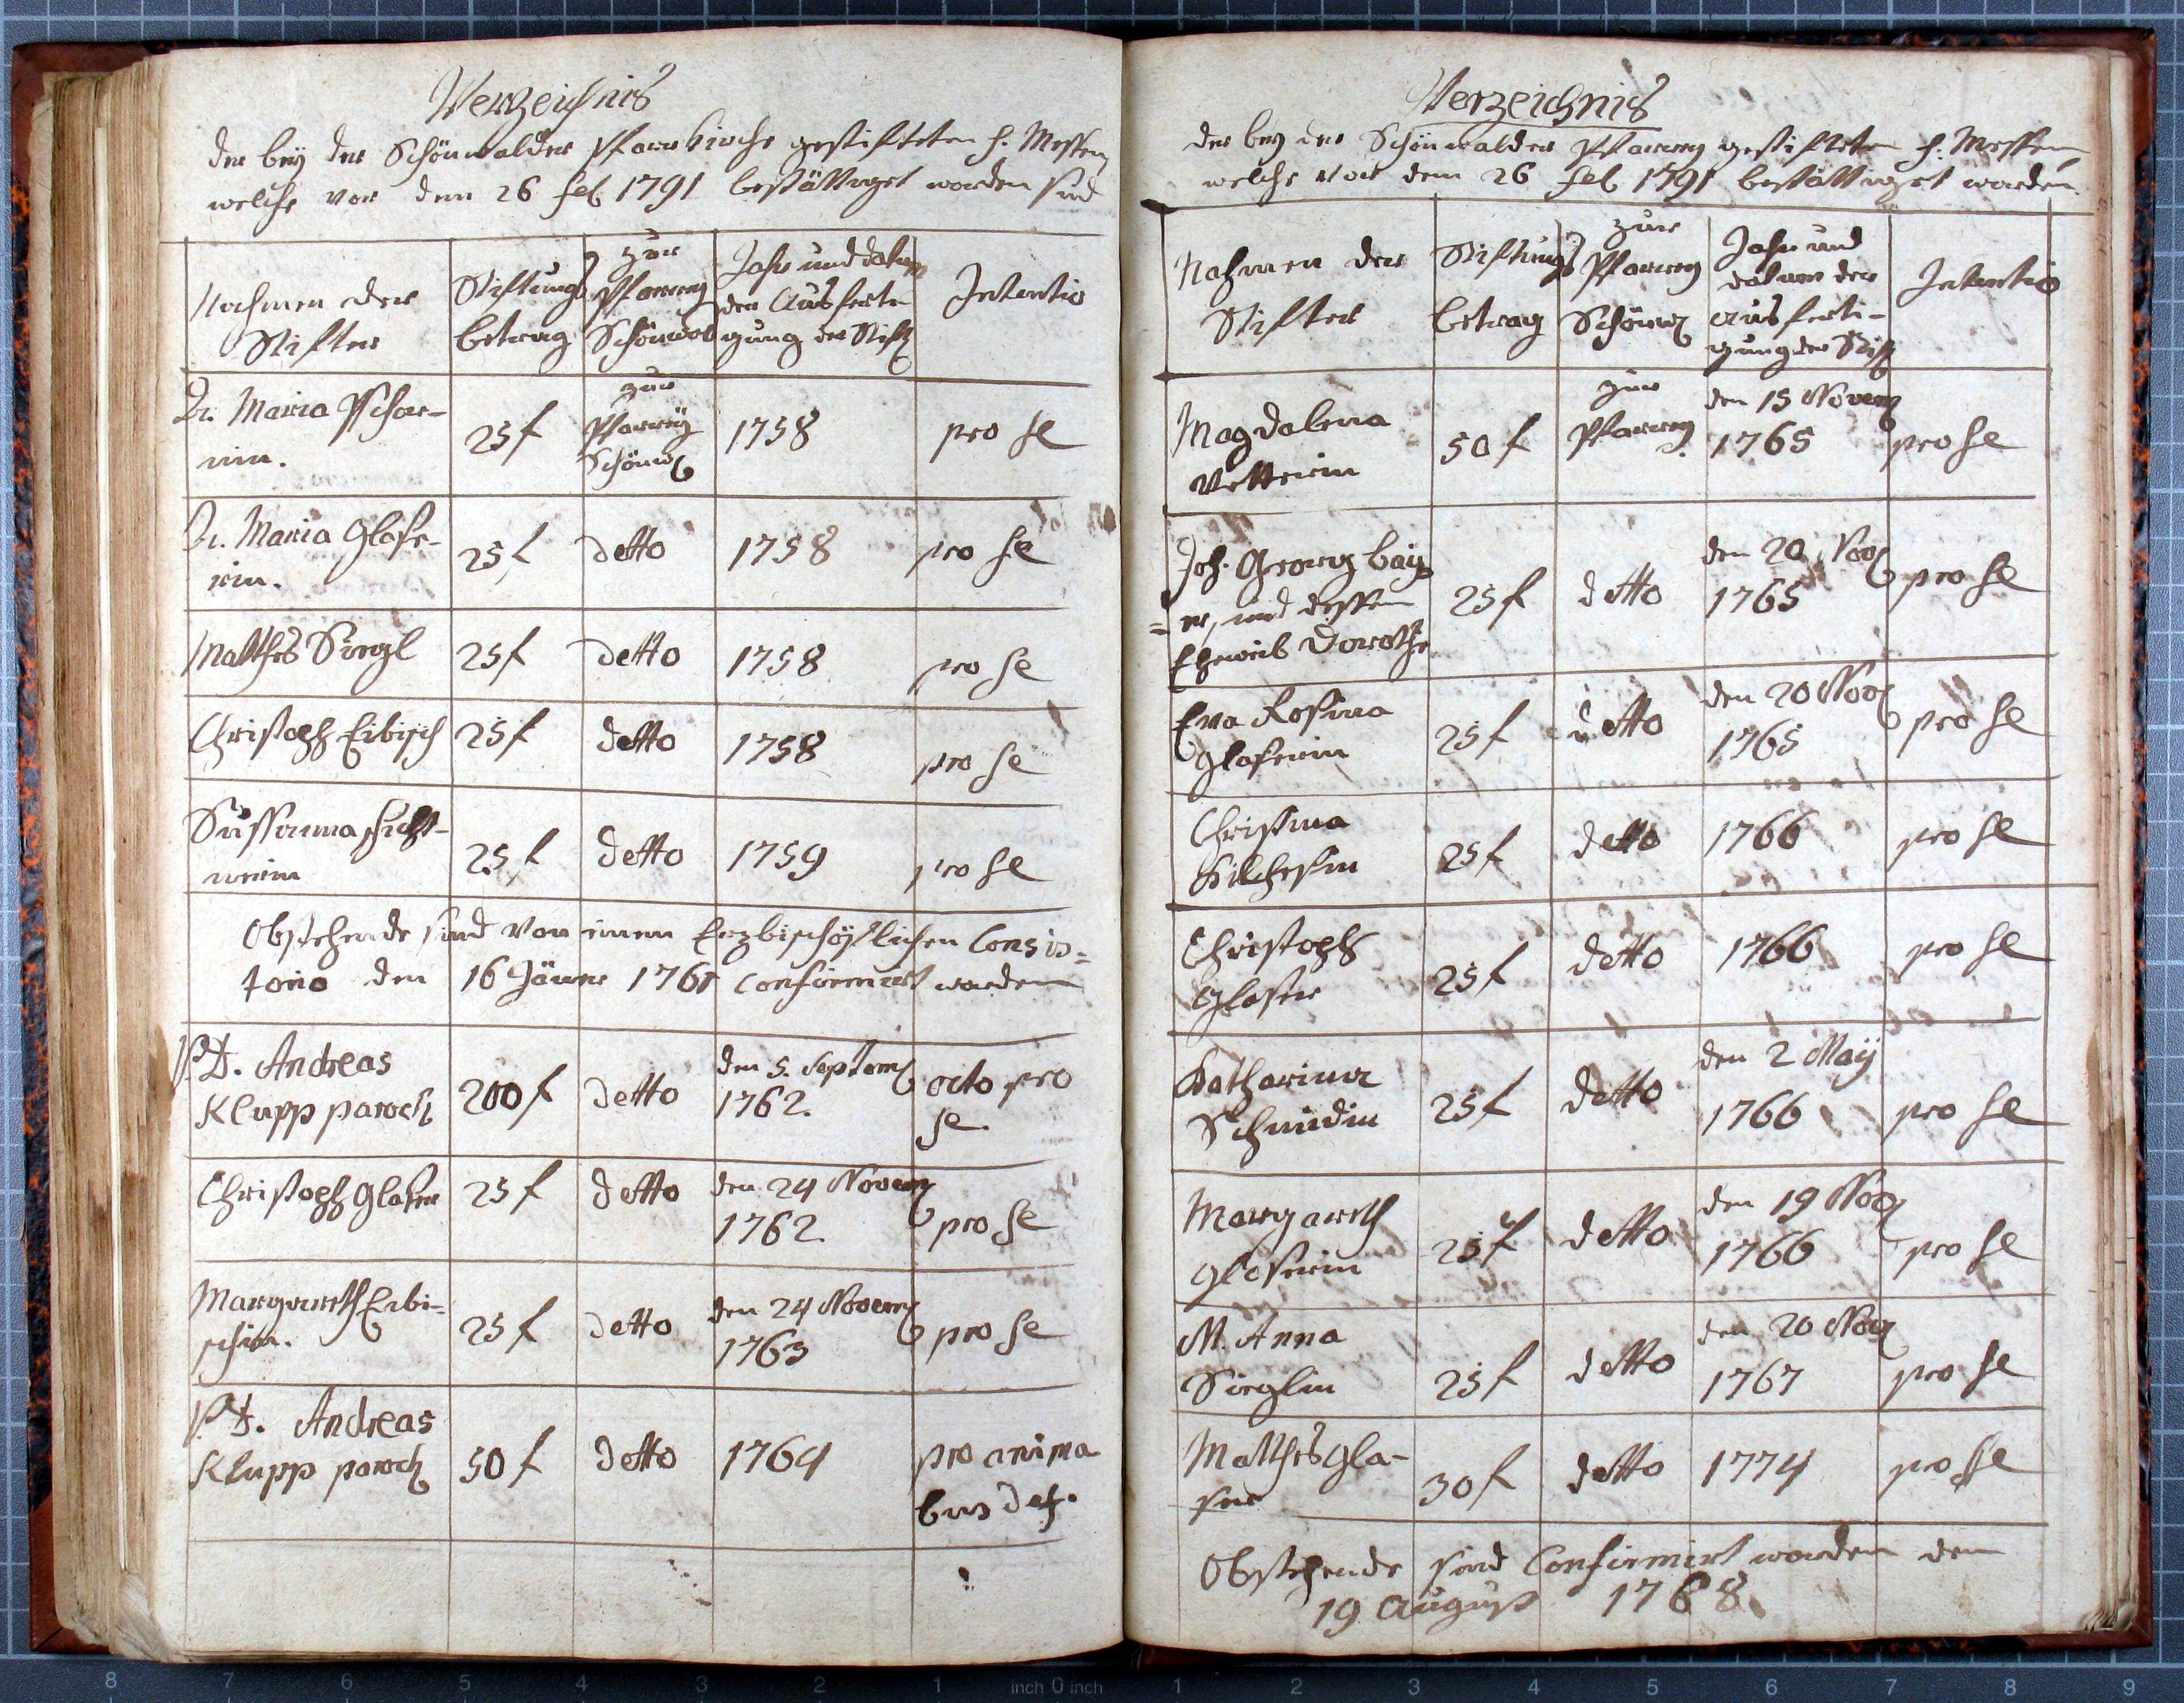 Verzeichnis
der beÿ der Schönwalder Pfarrkirche gestifteten h. Messen
welche vor dem 26 feb 1791 bestättiget worden sind
Nahmen der
Stifter
Stiftungs
betrag
zur
Pfarrey
Schönwal
Jahr und datum
der Ausferti
gung der Stift
Intentio
Maria
rin.
25 f
zur
Pfarreÿ
Schönw
1758
pro se
Maria Glase-
rin.
25 f
detto
1758
pro se
Matthes Siegl
25 f
detto
1758
pro se
Christoph Eibisch
25 f
detto
1758
pro se
Sussanna
25 f
detto
1759
pro se
Obstehende sind von einem Erzbischöflichen Consis=
torio den 16 Jäner 1761 Confirmirt worden
P. D. Andreas
Klupp paroch
200 f
detto
den 5. Septem
1762.
octo pro
se
Christoph Glaser
25 f
detto
den 24 Novem
1762.
pro se
Margareth Eibi-
schin.
25 f
detto
den 24 Novem
1763
pro se
P. D. Andreas
Klupp paroch
50 f
detto
1764
pro anima
bus def.
Verzeichnis
der beÿ der Schönwalder Pfarrey gestifteten h. Messen
welche vor dem 26 feb 1791 bestättiget worden.
Nahmen der
Stifter
Stiftungs
betrag
zur
Pfarrey
Schönw
Jahr und
datum der
Ausferti-
gung der Stif
Intentio
Magdalena
Vetterin
50 f
zur
Pfarrey
den 15 Novem
1765
pro se
Joh. Georg Baÿ
= er, und dessen
Eheweib Dorothe
25 f
detto
den 20 Nov
1765
pro se
Eva Rosina
Glaserin
25 f
detto
den 20 Nov
1765
pro se
Christina
25 f
detto
1766
pro se
Christoph
Glaser
25 f
detto
1766
pro se
Katharina
Schmidin
25 f
detto
den 2 Maÿ
1766
pro se
Margareth
Glaserin
25 f
detto
den 19 Nov
1766
pro se
M. Anna
Sieglin
25 f
detto
den 20 Nov
1767
pro se
Matthes Gla-
ser
30 f
detto
1774
pro se
Obstehende sind Confirmirt worden den
19 August 1788.
8 7 6 5 4 3 2 1 inch 0 inch 1 2 3 4 5 6 7 8 9